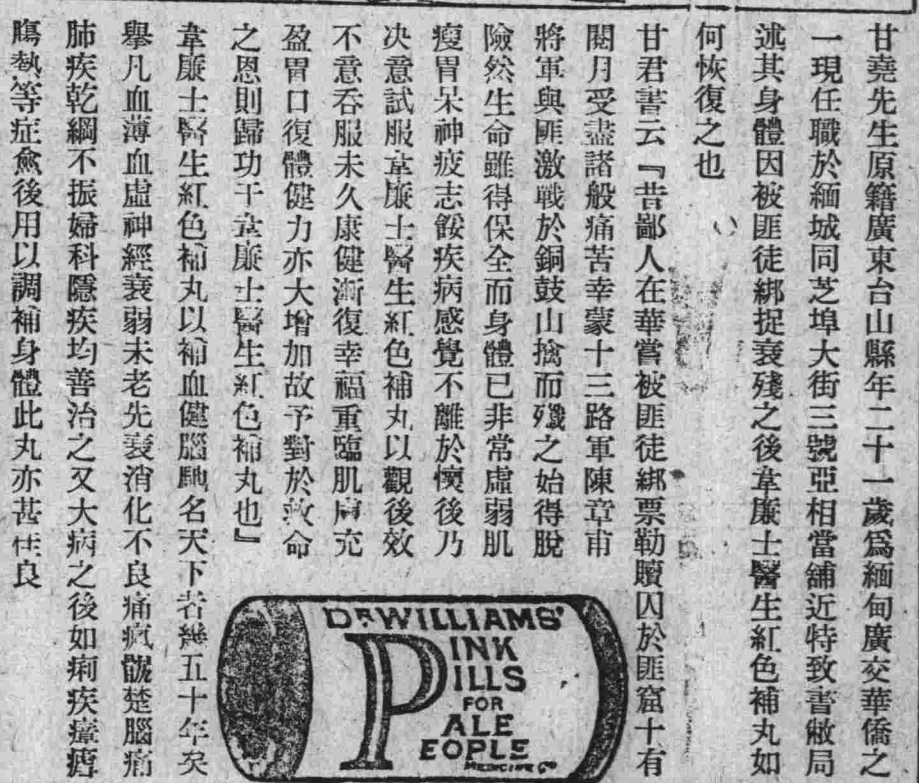 甘堯先生原籍廣東台山縣年二十一歲爲緬甸廣交華僑之
一現任職於緬城同芝埠大街三號亞相當舖近特致書敝局
述其身體因被匪徒綁捉衰殘之後韋廉士醫生紅色補丸如
何恢復之也
甘君書云『昔鄙人在華嘗被匪徒綁票勒贖囚於匪窟十有
閱月受盡諸般痛苦幸蒙十三路軍陳章甫
將軍與匪激戰於銅鼓山擒而殲之始得脫
險然生命雖得保全而身體已非常虛弱肌
瘦胃呆神疲志餒疾病感覺不離於懷後乃
決意試服韋廉士醫生紅色補丸以觀後效
不意吞服未久康健漸復幸福重臨肌膚充
盈胃口復體健力亦大增加故予對於救命
之恩則歸功于韋廉士醫生紅色補丸也』
韋廉士醫生紅色補丸以補血健腦馳名天下者幾五十年矣
舉凡血薄血虛神經衰弱未老先衰消化不良痛瘋骽楚腦痛
肺疾乾綱不振婦科隱疾均善治之又大病之後如痢疾瘴瘧
腸熱等症愈後用以調補身體此丸亦甚佳良
DR WILLIAMS'
PINK
PILLS
FOR
ALE
PEOPLE
MEDICINE Co